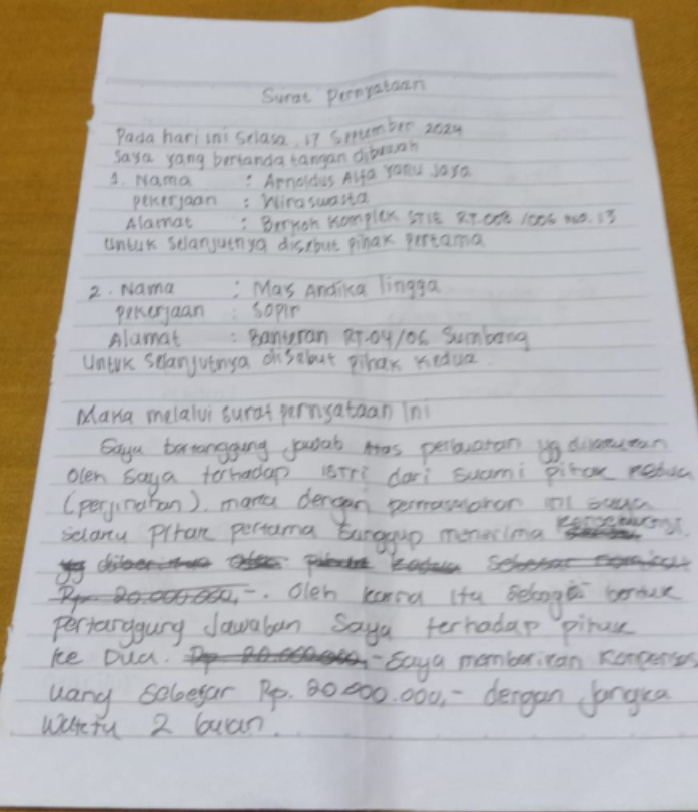 Surat Pernyataan
Pada hari ini Selasa, 17 September 2024
Saya yang bertanda tangan dibawah
1. Nama : Arnoldus Alfa Yanu Jaya
Pekerjaan : Wiraswasta
Alamat : Berkoh Komplek STIE RT.008 /006 No. 13
Untuk Selanjutnya disebut pihak pertama
2. Nama : Mas Andika lingga
Pekerjaan : Sopir
Alamat : Banteran RT.04/06 Sumbang
Untuk Selanjutnya disebut pihak kedua
Maka melalui surat pernyataan ini
Saya bertanggung jawab Atas perbuatan yg dilakukan
Oleh saya terhadap istri dari suami pihak kedua
(perjinahan). maka dengan permasalahan ini saya
selaku Pihak pertama Sanggup menerima
yg diberikan Oleh pihak kedua Sebesar nominal
Rp. 20.000.000,-. Oleh karna itu Sebagai bentuk
Pertanggung Jawaban Saya terhadap pihak
ke Dua. Rp 20.000.000,- Saya memberikan Kompensasi
Uang Sebesar Rp. 20.000.000,- dengan Jangka
Waktu 2 bulan.